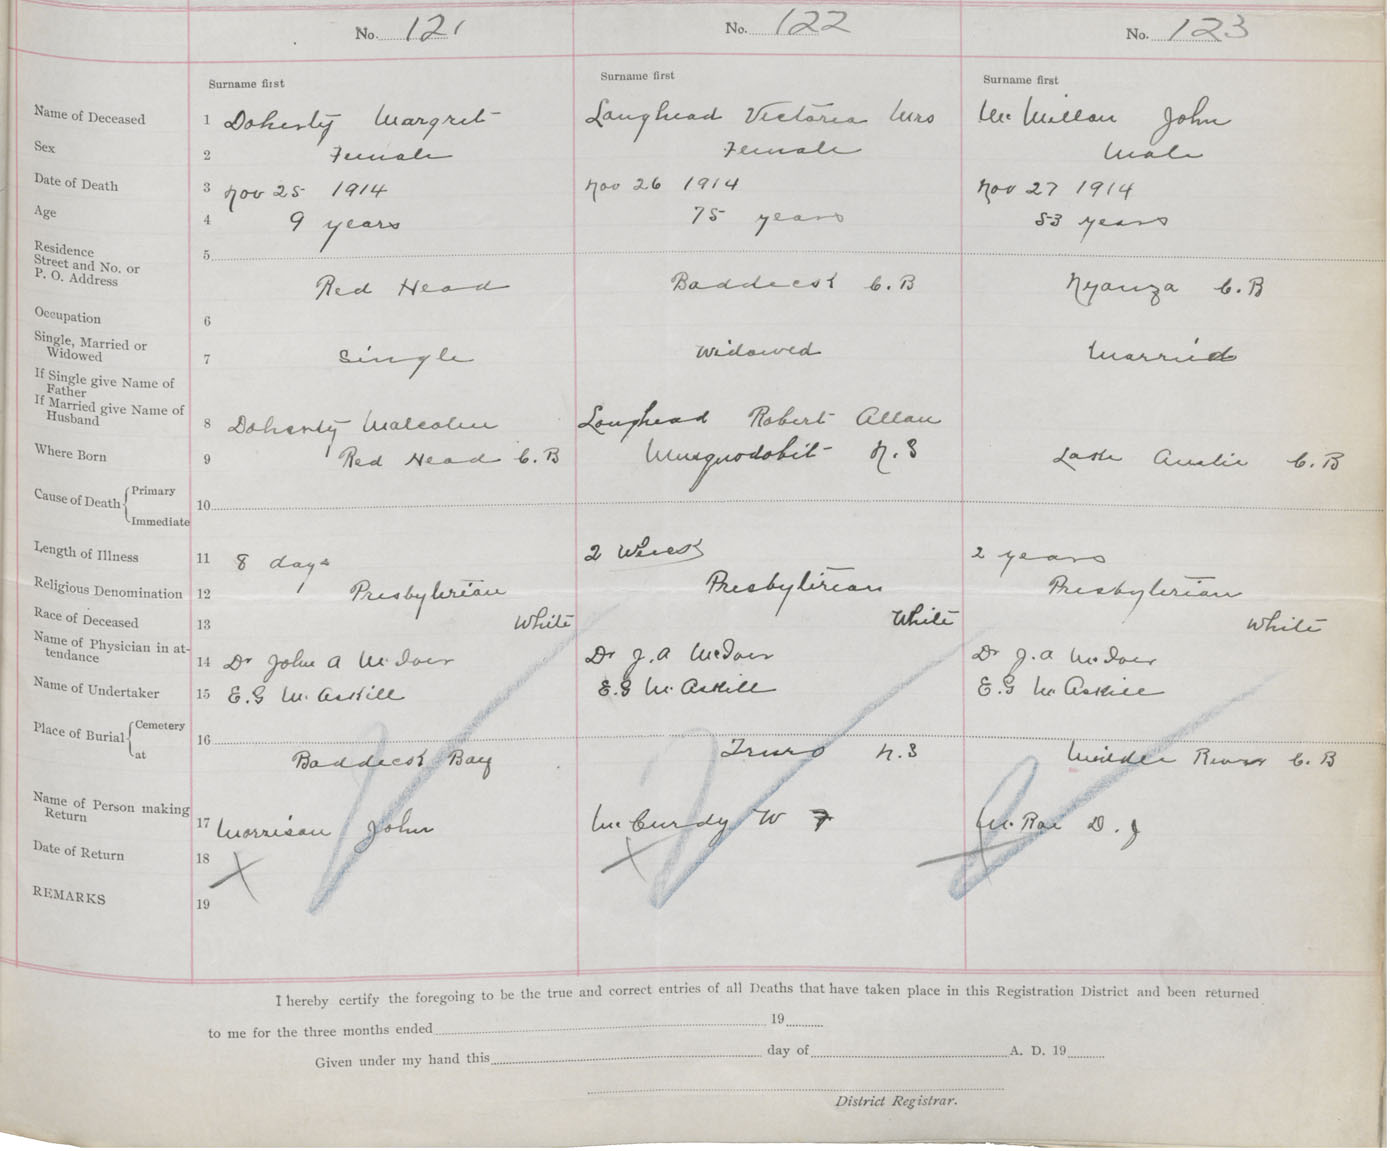 No. 121 No. 122 No. 123
Surname first Surname first Surname first
Name of Deceased 1 Doherty Margret Loughead Victoria Mrs McMillan John
Sex 2 Female Female Male
Date of Death 3 Nov 25 1914 Nov 26 1914 Nov 27 1914
Age 4 9 years 75 years 53 years
Residence
Street and No. or
P. O. Address 5 Red Head Baddeck C. B Nyanza C. B
Occupation 6
Single, Married or
Widowed 7 Single Widowed Married
If Single give Name of
Father
If Married give Name of
Husband 8 Doherty Malcolm Loughead Robert Allan
Where Born 9 Red Head C. B Musquodobit N. S Lake Ainslie C. B
Cause of Death Primary
Immediate 10
Length of Illness 11 8 days 2 Weeks 2 years
Religious Denomination 12 Presbyterian Presbyterian Presbyterian
Race of Deceased 13 White White White
Name of Physician in at-
tendance 14 Dr John A McIver Dr J. A McIver Dr J. A McIver
Name of Undertaker 15 E. G McAskill E. G McAskill E. G McAskill
Place of Burial Cemetery
at 16 Baddeck Bay Truro N. S Middle River C. B
Name of Person making
Return 17 Morrison John McCurdy W F McRae D. J
Date of Return 18 X X X
REMARKS 19
I hereby certify the foregoing to be the true and correct entries of all Deaths that have taken place in this Registration District and been returned
to me for the three months ended 19
Given under my hand this day of A. D. 19
District Registrar.